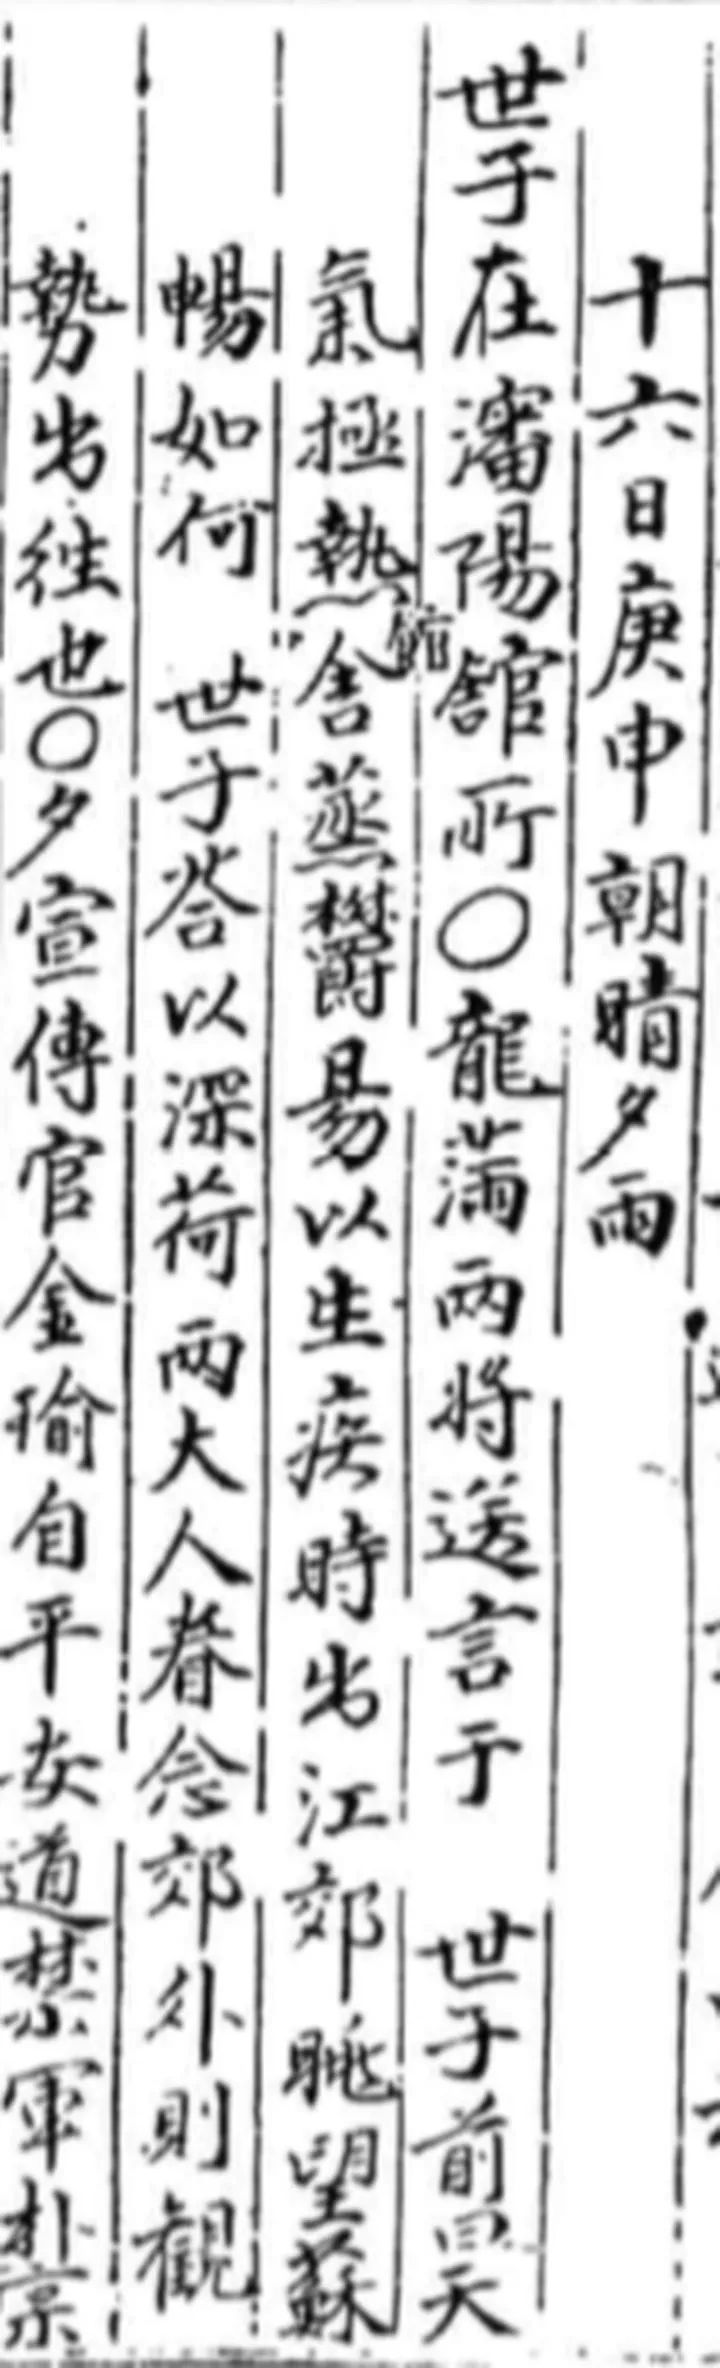 十六日庚申朝晴夕雨
世子在瀋陽舘所〇龍滿兩將送言于 世子前曰天
氣極熱舘舍蒸欝易以生疾時出江郊眺望蘇
暢如何 世子答以深荷兩大人眷念郊外則觀
勢出徃也〇夕宣傳官金瑜自平安道禁軍朴宗